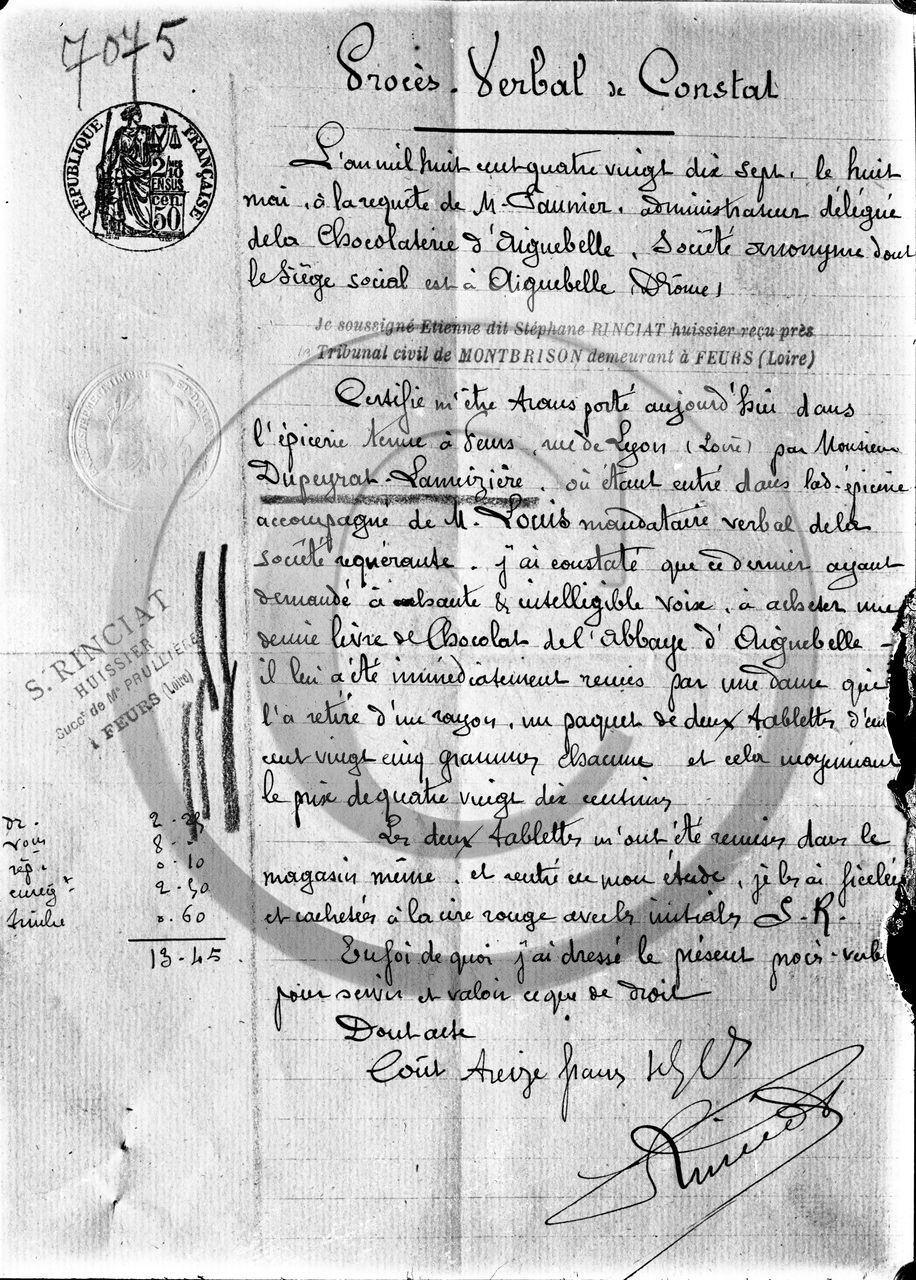 7075
Procès-Verbal de Constat
RÉPUBLIQUE FRANÇAISE
2/10 EN SUS
50 cen
L'an mil huit cent quatre vingt dix sept, le huit
mai, à la requête de M. Paunier, administrateur délégué
de la Chocolaterie d'Aiguebelle, Société anonyme dont
le Siège social est à Aiguebelle (Drôme)
Je soussigné Etienne dit Stéphane RINCIAT huissier reçu près
le Tribunal civil de MONTBRISON demeurant à FEURS (Loire)
Certifie m'être transporté aujourd'hui dans
l'épicerie tenue à Feurs, rue de Lyon (Loire) par Monsieur
Dupeyrat-Lamuizière, où étant entré dans lad. épicerie
accompagné de M. Louis mandataire verbal de la
Société requérante, j'ai constaté que ce dernier ayant
demandé à haute & intelligible voix, à acheter une
demie livre de Chocolat de l'Abbaye d'Aiguebelle -
il lui a été immédiatement remis par une dame qui
l'a retiré d'un rayon, un paquet de deux tablettes d'un
cent vingt cinq grammes chacune et cela moyennant
le prix de quatre vingt dix centimes
Les deux tablettes m'ont été remises dans le
magasin même, et rentré en mon étude, je les ai ficelées
et cachetées à la cire rouge avec les initiales S-R-
En foi de quoi j'ai dressé le présent procès-verb
pour servir et valoir ce que de droit
Dont acte
Coût treize francs
Rinciat
S. RINCIAT
HUISSIER
Succr de Me PAULLIÈRE
à FEURS (Loire)
or. 2-25
Voire 8 -
rép. 0-10
enregt 2-50
timbre 0.60
13-45